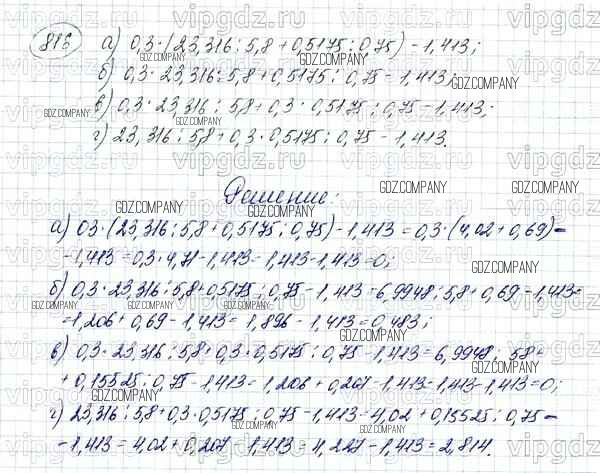 816 а) 0,3·(23,316:5,8+0,5175:0,75)-1,413;
б) 0,3·23,316:5,8+0,5175:0,75-1,413;
в) 0,3·23,316:5,8+0,3·0,5175:0,75-1,413.
г) 23,316:5,8+0,3·0,5175:0,75-1,413.
Решение:
а) 0,3·(23,316:5,8+0,5175:0,75)-1,413=0,3·(4,02+0,69)-
-1,413=0,3·4,71-1,413=1,413-1,413=0;
б) 0,3·23,316:5,8+0,5175:0,75-1,413=6,9948:5,8+0,69-1,413=
=1,206+0,69-1,413=1,896-1,413=0,483;
в) 0,3·23,316:5,8+0,3·0,5175:0,75-1,413=6,9948:5,8+
+0,15525:0,75-1,413=1,206+0,207-1,413=1,413-1,413=0;
г) 23,316:5,8+0,3·0,5175:0,75-1,413=4,02+0,15525:0,75-
-1,413=4,02+0,207-1,413=4,227-1,413=2,814.
vipgdz.ru
GDZ.COMPANY